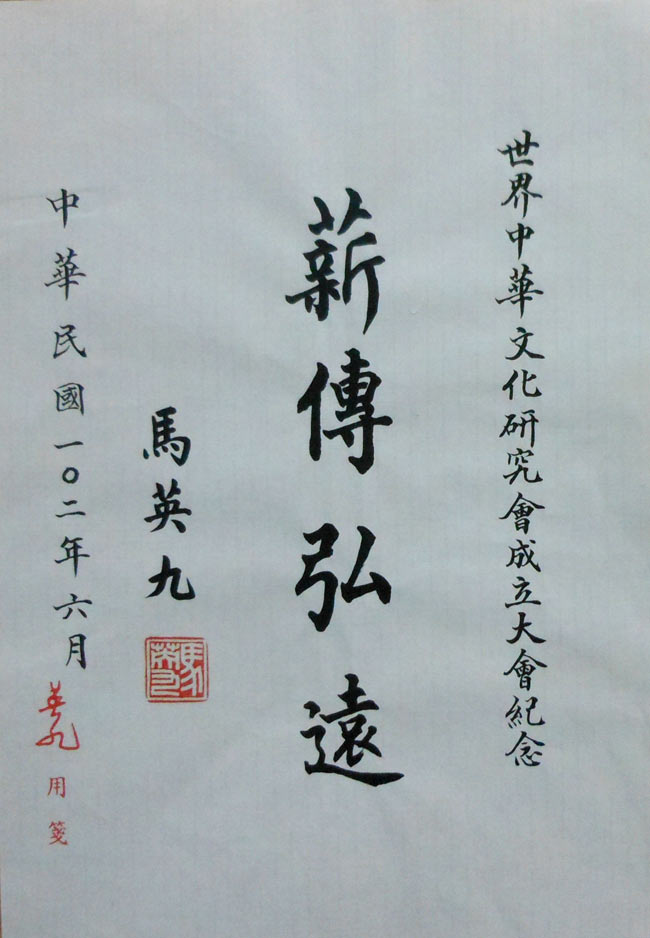 世界中華文化研究會成立大會紀念
薪傳弘遠
馬英九
中華民國一〇二年六月
用箋